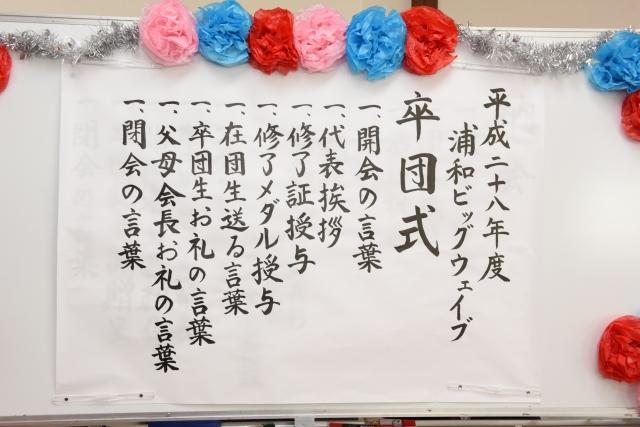 平成二十八年度
浦和ビッグウェイブ
卒団式
一、開会の言葉
一、代表挨拶
一、修了証授与
一、修了メダル授与
一、在団生送る言葉
一、卒団生お礼の言葉
一、父母会長お礼の言葉
一、閉会の言葉